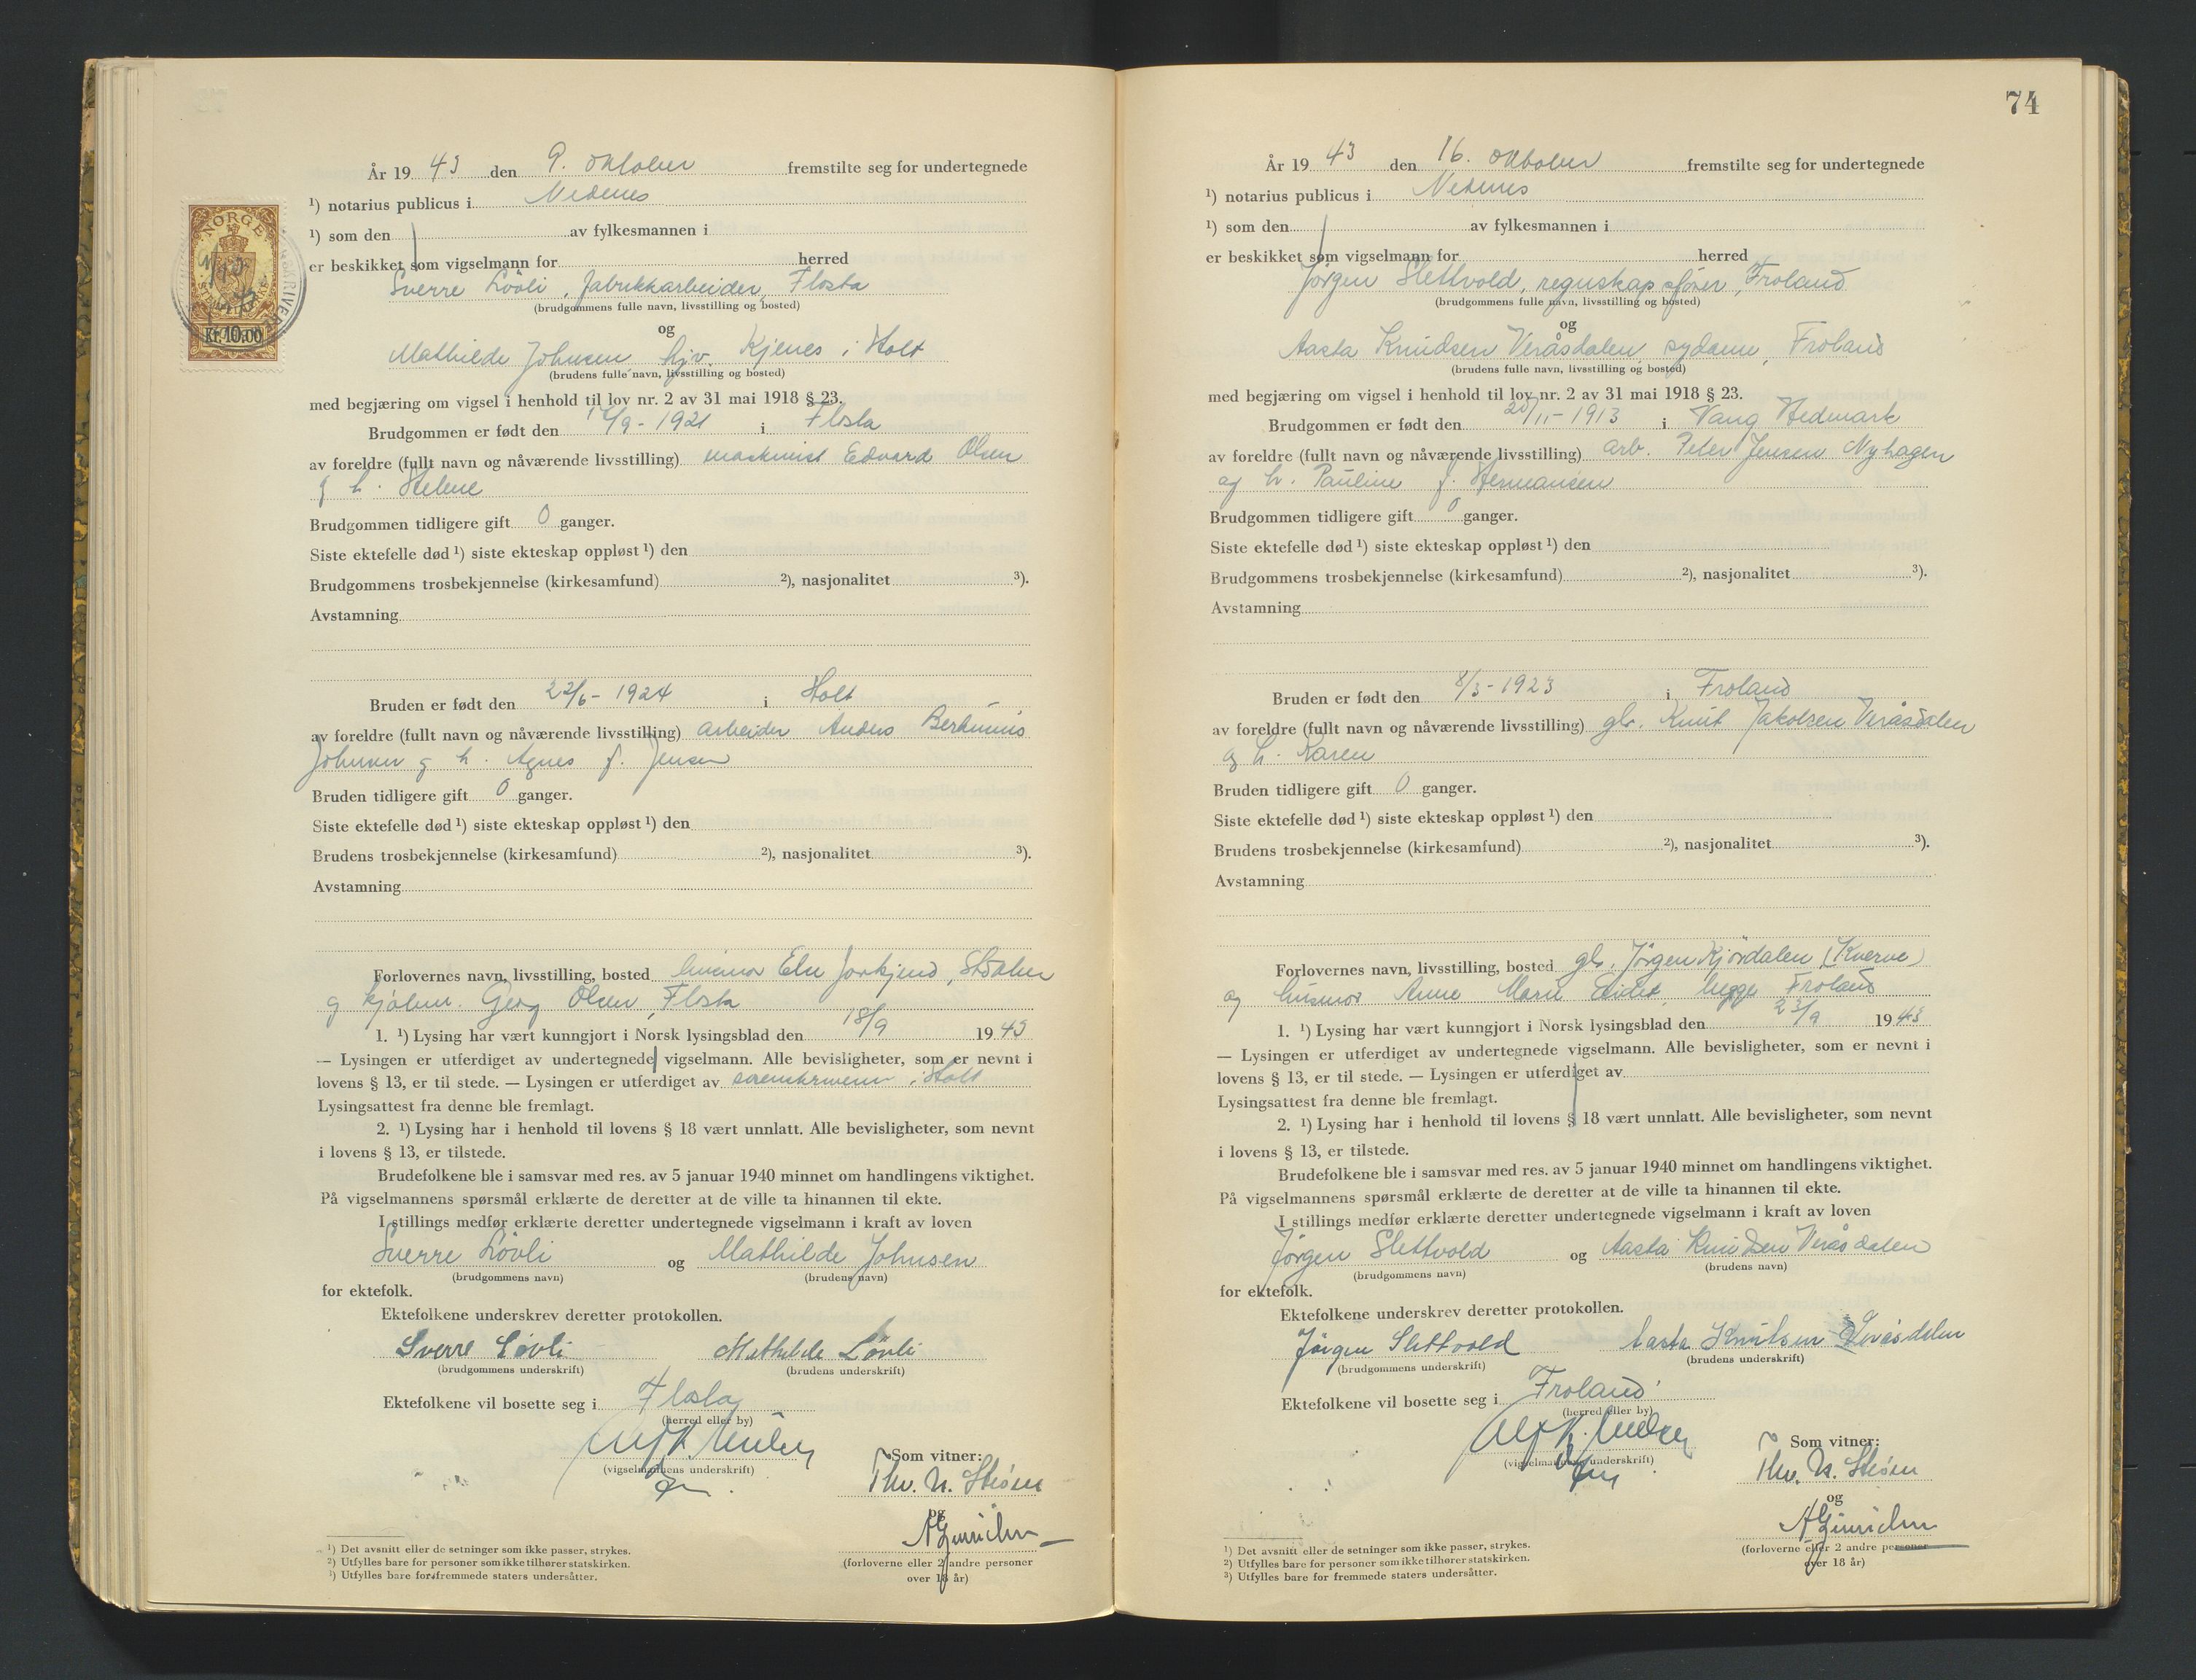 År 19 43 den 9. oktober fremstilte seg for undertegnede
¹) notarius publicus i Nedenes
¹) som den av fylkesmannen i
er beskikket som vigselmann for herred
Sverre Lövli, fabrikkarbeider, Flosta
(brudgommens fulle navn, livsstilling og bosted)
og
Mathilde Johnsen hjv. Kjenes i Holt
(brudens fulle navn, livsstilling og bosted)
med begjæring om vigsel i henhold til lov nr. 2 av 31 mai 1918 § 23.
Brudgommen er født den /9 - 1921 i Flosta
av foreldre (fullt navn og nåværende livsstilling) maskinist Edvard Olsen
og h. Helene
Brudgommen tidligere gift 0 ganger.
Siste ektefelle død ¹) siste ekteskap oppløst ¹) den
Brudgommens trosbekjennelse (kirkesamfund) ²), nasjonalitet ³).
Avstamning
Bruden er født den 22/6 - 1924 i Holt
av foreldre (fullt navn og nåværende livsstilling) arbeider Anders
Johnsen og h. Agnes f. Jensen
Bruden tidligere gift 0 ganger.
Siste ektefelle død ¹) siste ekteskap oppløst ¹) den
Brudens trosbekjennelse (kirkesamfund) ²), nasjonalitet ³).
Avstamning
Forlovernes navn, livsstilling, bosted husmor
og Georg Olsen, Flosta
1. ¹) Lysing har vært kunngjort i Norsk lysingsblad den 18/9 19 43
— Lysingen er utferdiget av undertegnede vigselmann. Alle bevisligheter, som er nevnt i
lovens § 13, er til stede. — Lysingen er utferdiget av sorenskriveren i Holt
Lysingsattest fra denne ble fremlagt.
2. ¹) Lysing har i henhold til lovens § 18 vært unnlatt. Alle bevisligheter, som nevnt
i lovens § 13, er tilstede.
Brudefolkene ble i samsvar med res. av 5 januar 1940 minnet om handlingens viktighet.
På vigselmannens spørsmål erklærte de deretter at de ville ta hinannen til ekte.
I stillings medfør erklærte deretter undertegnede vigselmann i kraft av loven
Sverre Lövli og Mathilde Johnsen
(brudgommens navn) (brudens navn)
for ektefolk.
Ektefolkene underskrev deretter protokollen.
Sverre Lövli Mathilde Lövli
(brudgommens underskrift) (brudens underskrift)
Ektefolkene vil bosette seg i Flosta
(herred eller by)
(vigselmannens underskrift)
Som vitner:
Thv. N. Steen
og
(forloverne eller 2 andre personer
over 18 år)
¹) Det avsnitt eller de setninger som ikke passer, strykes.
²) Utfylles bare for personer som ikke tilhører statskirken.
³) Utfylles bare for fremmede staters undersåtter.
NORGE
Kr. 10.00
74
År 19 43 den 16. oktober fremstilte seg for undertegnede
¹) notarius publicus i Nedenes
¹) som den av fylkesmannen i
er beskikket som vigselmann for herred
Jørgen Slettvold, regnskapsfører, Froland
(brudgommens fulle navn, livsstilling og bosted)
og
Aasta Knudsen Veråsdalen, sydame, Froland
(brudens fulle navn, livsstilling og bosted)
med begjæring om vigsel i henhold til lov nr. 2 av 31 mai 1918 § 23.
Brudgommen er født den 20/11 - 1913 i Vang Hedmark
av foreldre (fullt navn og nåværende livsstilling) arb. Peter Jensen Nyhagen
og h. Pauline f. Hermansen
Brudgommen tidligere gift 0 ganger.
Siste ektefelle død ¹) siste ekteskap oppløst ¹) den
Brudgommens trosbekjennelse (kirkesamfund) ²), nasjonalitet ³).
Avstamning
Bruden er født den 8/3 - 1923 i Froland
av foreldre (fullt navn og nåværende livsstilling) gbr. Knut Jakobsen Veråsdalen
og h. Karen
Bruden tidligere gift 0 ganger.
Siste ektefelle død ¹) siste ekteskap oppløst ¹) den
Brudens trosbekjennelse (kirkesamfund) ²), nasjonalitet ³).
Avstamning
Forlovernes navn, livsstilling, bosted gbr. Jörgen Kjördalen (Kverve)
og husmor Anne Marie begge Froland
1. ¹) Lysing har vært kunngjort i Norsk lysingsblad den 23/9 19 43
— Lysingen er utferdiget av undertegnede vigselmann. Alle bevisligheter, som er nevnt i
lovens § 13, er til stede. — Lysingen er utferdiget av
Lysingsattest fra denne ble fremlagt.
2. ¹) Lysing har i henhold til lovens § 18 vært unnlatt. Alle bevisligheter, som nevnt
i lovens § 13, er tilstede.
Brudefolkene ble i samsvar med res. av 5 januar 1940 minnet om handlingens viktighet.
På vigselmannens spørsmål erklærte de deretter at de ville ta hinannen til ekte.
I stillings medfør erklærte deretter undertegnede vigselmann i kraft av loven
Jørgen Slettvold og Aasta Knudsen Veråsdalen
(brudgommens navn) (brudens navn)
for ektefolk.
Ektefolkene underskrev deretter protokollen.
Jörgen Slettvold Aasta Knutsen Veråsdalen
(brudgommens underskrift) (brudens underskrift)
Ektefolkene vil bosette seg i Froland
(herred eller by)
(vigselmannens underskrift)
Som vitner:
Thv. N. Steen
og
(forloverne eller 2 andre personer
over 18 år)
¹) Det avsnitt eller de setninger som ikke passer, strykes.
²) Utfylles bare for personer som ikke tilhører statskirken.
³) Utfylles bare for fremmede staters undersåtter.